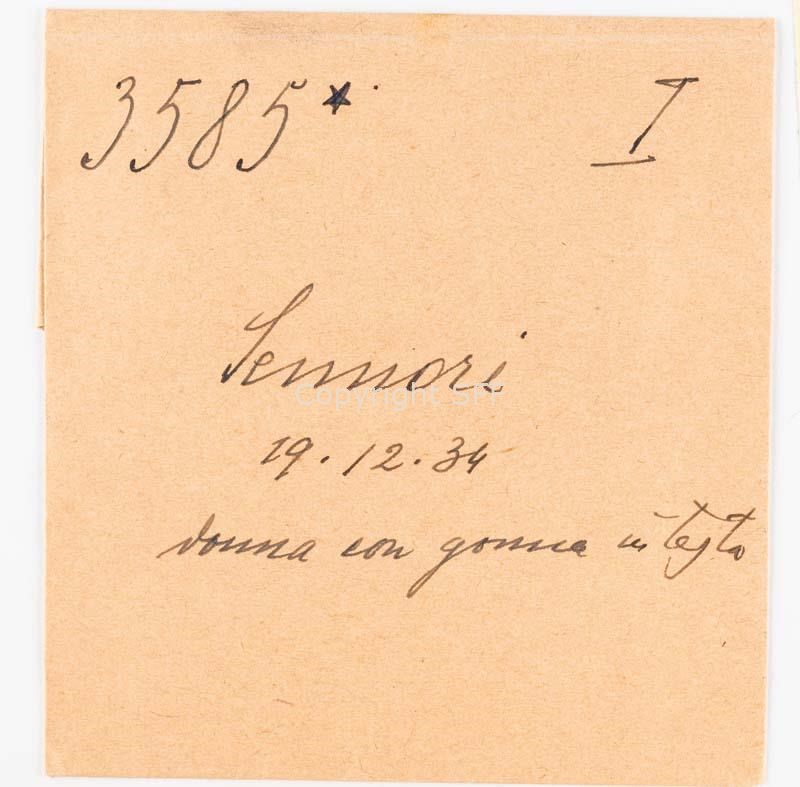 3585* I
Sennori
Copyright SFI
19.12.34
donna con gonna in testa